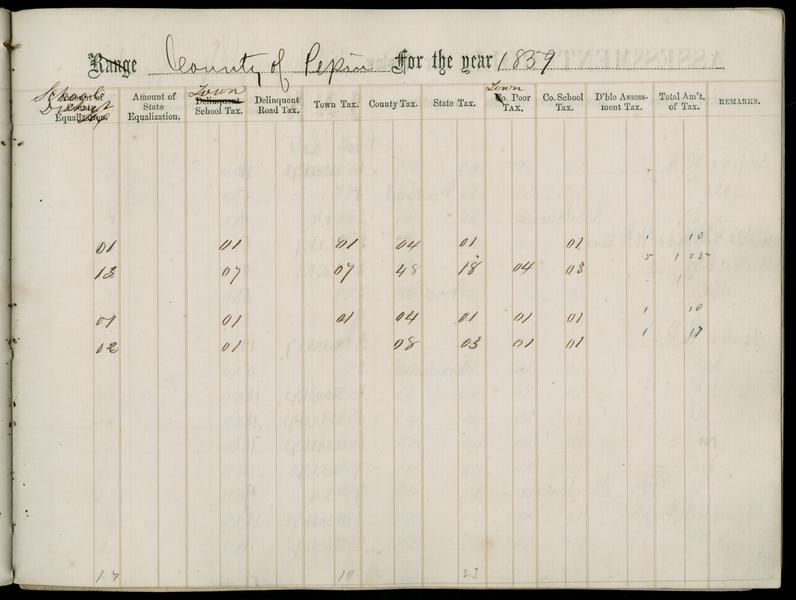 Range County of Pepin For the year 1859
School District Tax
Equalization.
Amount of State Equalization.
Town
Delinquent School Tax.
Delinquent Road Tax.
Town Tax.
County Tax.
State Tax.
Town
Co. Poor TAX.
Co. School Tax.
D'ble Assess-ment Tax.
Total Am't. of Tax.
REMARKS.
01 01 01 04 01 01 1 10
13 07 07 48 18 04 03 5 1 05
01 01 01 04 01 01 01 1 10
02 01 08 03 01 01 1 17
17 23